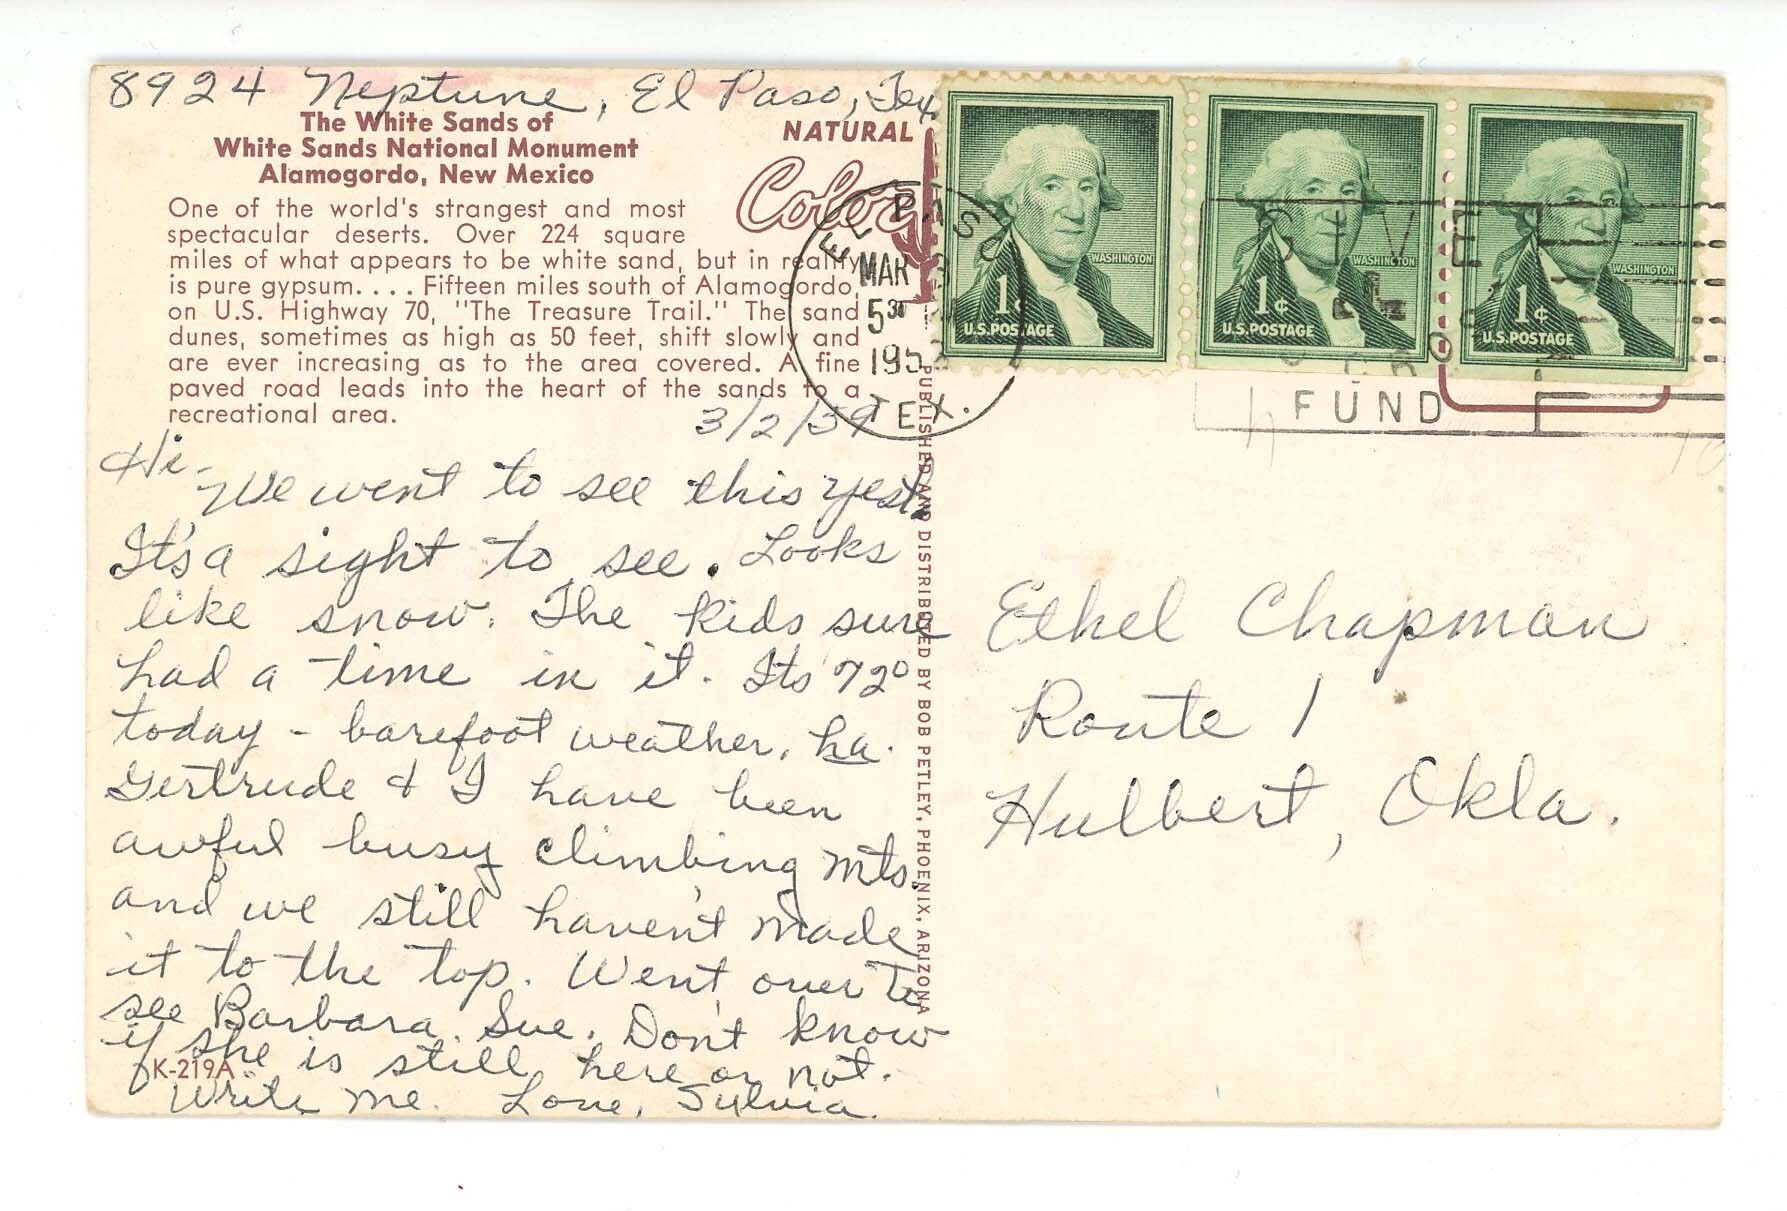 8924 Neptune, El Paso, Tex
The White Sands of
White Sands National Monument
Alamogordo, New Mexico
One of the world's strangest and most
spectacular deserts. Over 224 square
miles of what appears to be white sand, but in reality
is pure gypsum. . . . Fifteen miles south of Alamogordo,
on U.S. Highway 70, "The Treasure Trail." The sand
dunes, sometimes as high as 50 feet, shift slowly and
are ever increasing as to the area covered. A fine
paved road leads into the heart of the sands to a
recreational area.
NATURAL
Color
3/2/59
Hi-
We went to see this yest.
It's a sight to see. Looks
like snow. The kids sure
had a time in it. Its 72°
today - barefoot weather, ha.
Gertrude & I have been
awful busy climbing mts.
and we still haven't made
it to the top. Went over to
see Barbara Sue. Don't know
if she is still here or not.
K-219A
Write me. Love, Sylvia.
PUBLISHED AND DISTRIBUTED BY BOB PETLEY, PHOENIX, ARIZONA
EL PASO
MAR
5 30
195
TEX.
WASHINGTON
1¢
U.S. POSTAGE
WASHINGTON
1¢
U.S. POSTAGE
WASHINGTON
1¢
U.S. POSTAGE
GIVE
FUND
Ethel Chapman
Route 1
Hulbert, Okla.